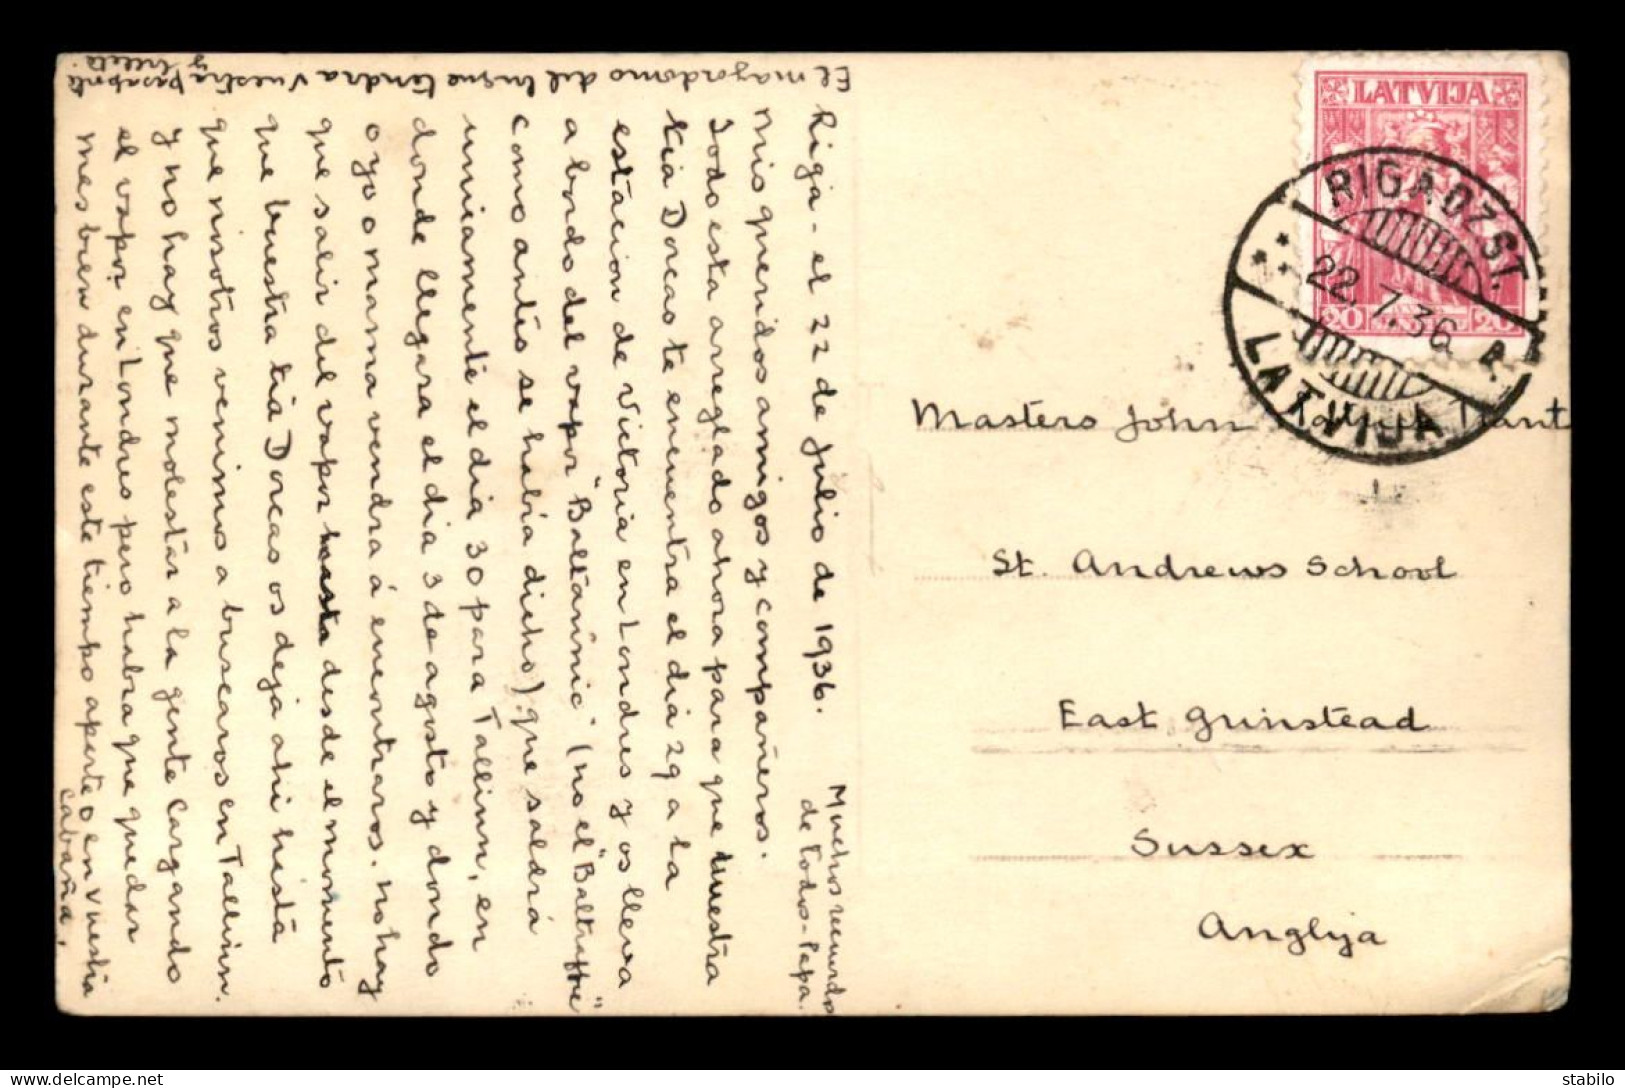 Riga - el 22 de julio de 1936.
Mis queridos amigos y compañeros.
Todo esta arreglado ahora para que vuestra
tia Dorcas te encuentra el dia 29 a la
estación de Victoria en Londres y os lleva
a bordo del vapor "Baltannic" (no el "Baltraffic"
como antes se habia dicho) que saldrá
unicamente el dia 30 para Tallinn, en
donde llegara el dia 3 de agosto y dondo
o yo o mama vendrá á encontraros. No hay
que salir del vapor hasta desde el momento
que vuestra tia Dorcas os deja ahi hista
que nosotros venimos a buscaros en Tallinn.
y no hay que molestar a la gente cargando
el vapor en Londres pero habra que quedar
mes bien durante este tiempo aparte o en vuestra
cabaña,
El mayordomo del buque tendra vuestra pasaporte
y billete.
Muchos recuerdos
de todos - Papa.
LATVIJA
20 20
RIGA DZ. ST.
22. 7. 36 A.
LATVIJA
Masters John Nant
St. Andrews School
East Grinstead
Sussex
Anglija
stabilo